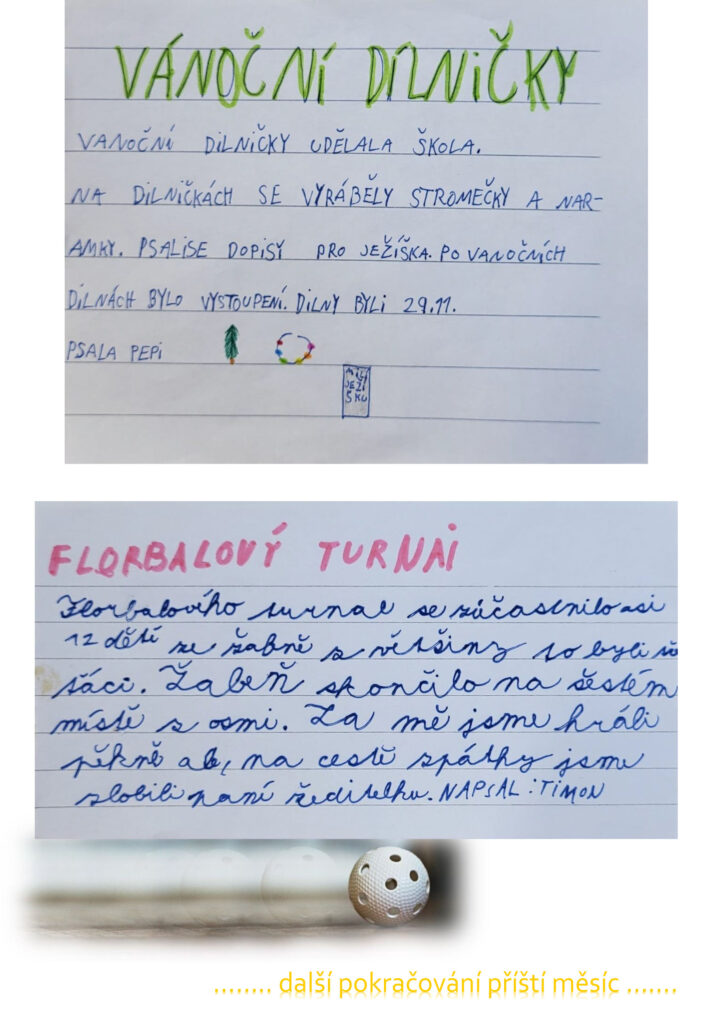 VÁNOČNÍ DÍLNIČKY
VANOČNÍ DILNIČKY UDĚLALA ŠKOLA.
NA DILNIČKÁCH SE VYRÁBĚLY STROMEČKY A NAR-
AMKY. PSALISE DOPISY PRO JEŽÍŠKA. PO VANOČNÍCH
DÍLNÁCH BYLO VYSTOUPENÍ. DILNY BYLI 29.11.
PSALA PEPI
MILÍ
JEŽÍ
ŠKU
FLORBALOVÝ TURNAI
Florbalového turnae se zúčastnilo asi
12 dětí ze žabně s většiny to byli
táci. Žabeň skončilo na šestém
místě s osmi. Za mě jsme hráli
pěkně ale, na cestě zpátky jsme
zlobili paní ředitelku. NAPSAL : TIMON
........ další pokračování příští měsíc .......